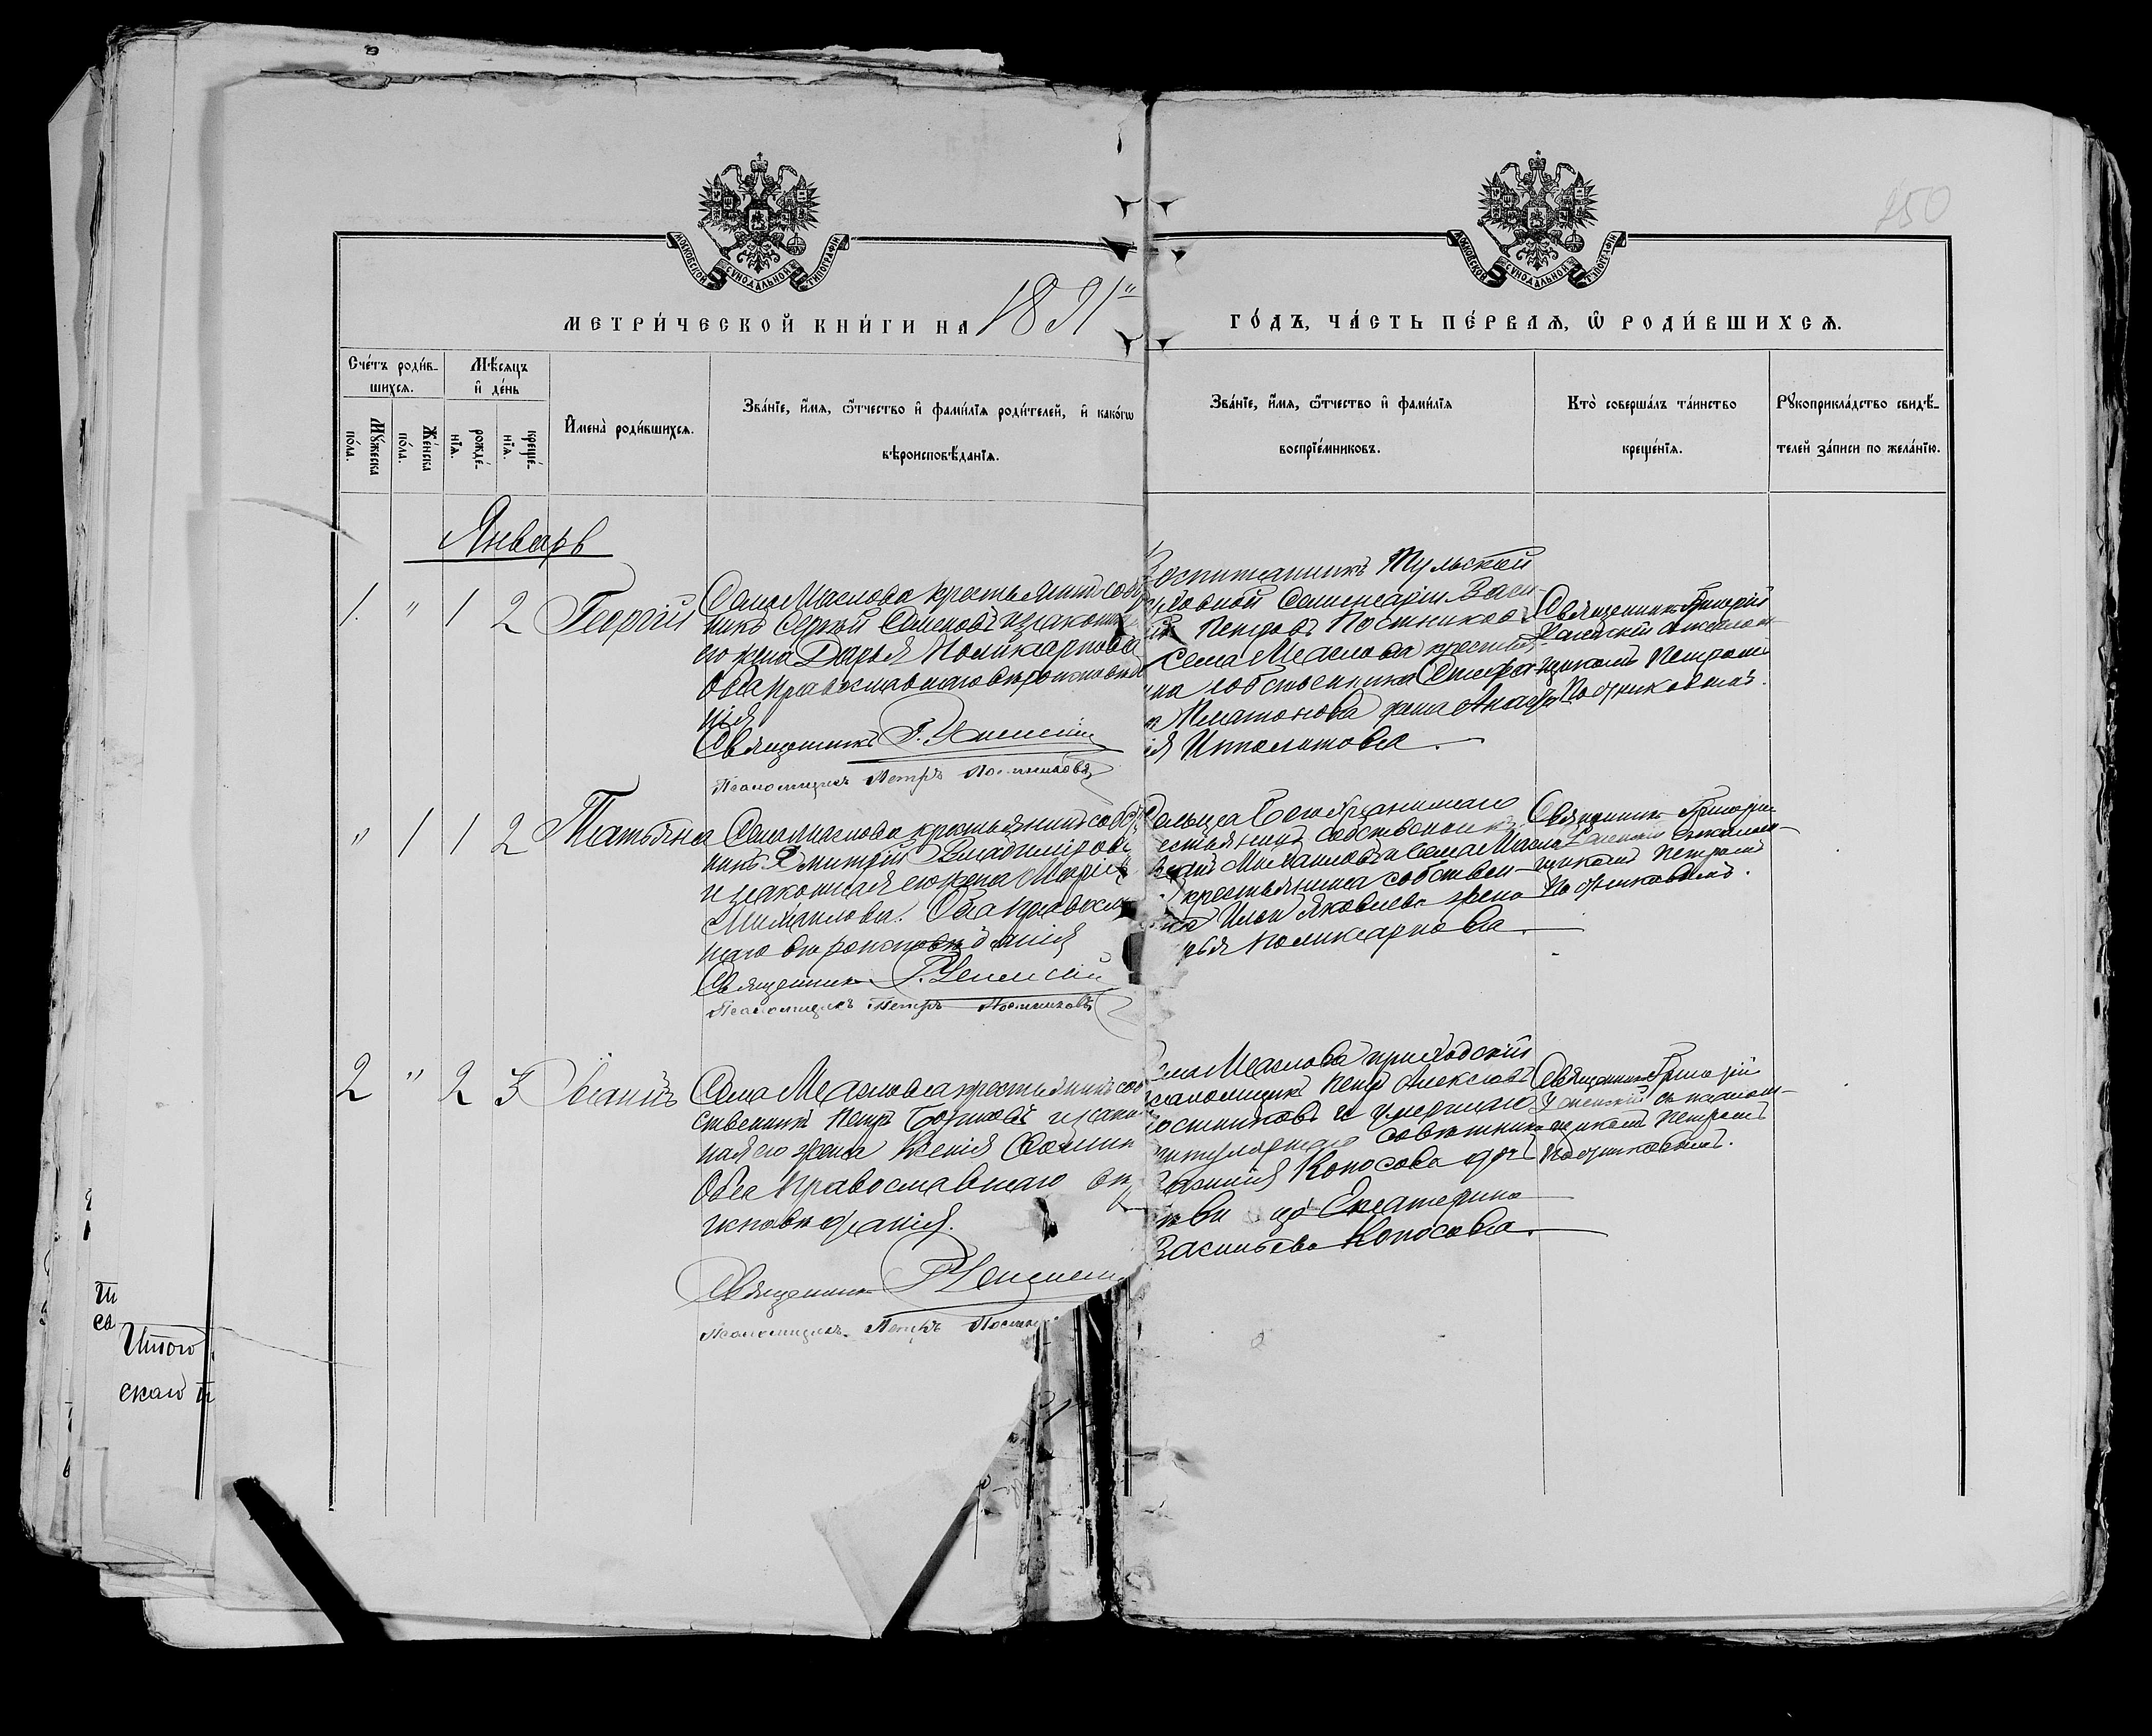 250
МОСКОВСКОЙ СѴНОДАЛЬНОЙ ТИПОГРАФІИ
МОСКОВСКОЙ СѴНОДАЛЬНОЙ ТИПОГРАФІИ
МЕТРИ́ЧЕСКОЙ КНИ́ГИ НА 1891
ГО́ДЪ, ЧА́СТЬ ПЕ́РВАѦ, Ѽ РОДИ́ВШИХСѦ.
Сче́тъ роди́в-
шихсѧ.
Мѣ́сѧцъ
и҆ де́нь
Мꙋ́жеска
по́ла.
Же́нска
по́ла.
рожде́-
нїѧ.
креще́-
нїѧ.
И҆мена̀ роди́вшихсѧ.
Зва́нїе, и҆́мѧ, ѻ҆́тчество и҆ фами́лїѧ роди́телей, и҆ како́гѡ
вѣроисповѣ́данїѧ.
Зва́нїе, и҆́мѧ, ѻ҆́тчество и҆ фами́лїѧ
воспрїе́мниковъ.
Кто̀ соверша́лъ та́инство
креще́нїѧ.
Рꙋкоприкла́дство свидѣ́-
телей за́писи по жела́нїю.
Январь
1. " 1 2 Георгій
Села Маслова крестьянинъ соб
никъ Сергѣй Семеновъ и законн
его жена Дарья Поликарпова
Оба православнаго вѣроисповѣда
нія
Священникъ Г. Успенскій
Псаломщикъ Петръ Постниковъ
Воспитанникъ Тульской
духовной Семинаріи Васи
лій Петровъ Постниковъ
села Маслова крестья
нина собственника Стефа
на Платонова жена Анаста
сія Ипполитова.
Священникъ Григорій
Успенскій съ псалом
щикомъ Петромъ
Постниковымъ.
" 1 1 2 Татьяна
Села Маслова крестьянинъ собст
никъ Дмитрій Владиміровъ
и законная его жена Марія
Михаилова. Оба православ
наго вѣроисповѣданія
Священникъ Г. Успенскій
Псаломщикъ Петръ Постниковъ
крестьянинъ собственникъ
Михаиловъ и села Маслова
крестьянина собствен-
ника Яковлева жена
рья Поликарпова
Священникъ Григорій
Успенскій съ псалом-
щикомъ Петромъ
Постниковымъ.
2 " 2 3 Іоаннъ
Села Маслова крестьянинъ соб
ственникъ Петръ и закон
ная его жена Ксенія
Оба Православнаго вѣ
исповѣданія.
Священникъ Г. Успенскій
Псаломщикъ Петръ Постник
Села Маслова приходскій
псаломщикъ Петръ Алексѣевъ
Постниковъ и умершаго
титулярнаго совѣтника
Василія Копосова доч
Екатерина
Васильева Копосова.
Священникъ Григорій
Успенскій съ псалом-
щикомъ Петромъ
Постниковымъ.
Итого
скаго п